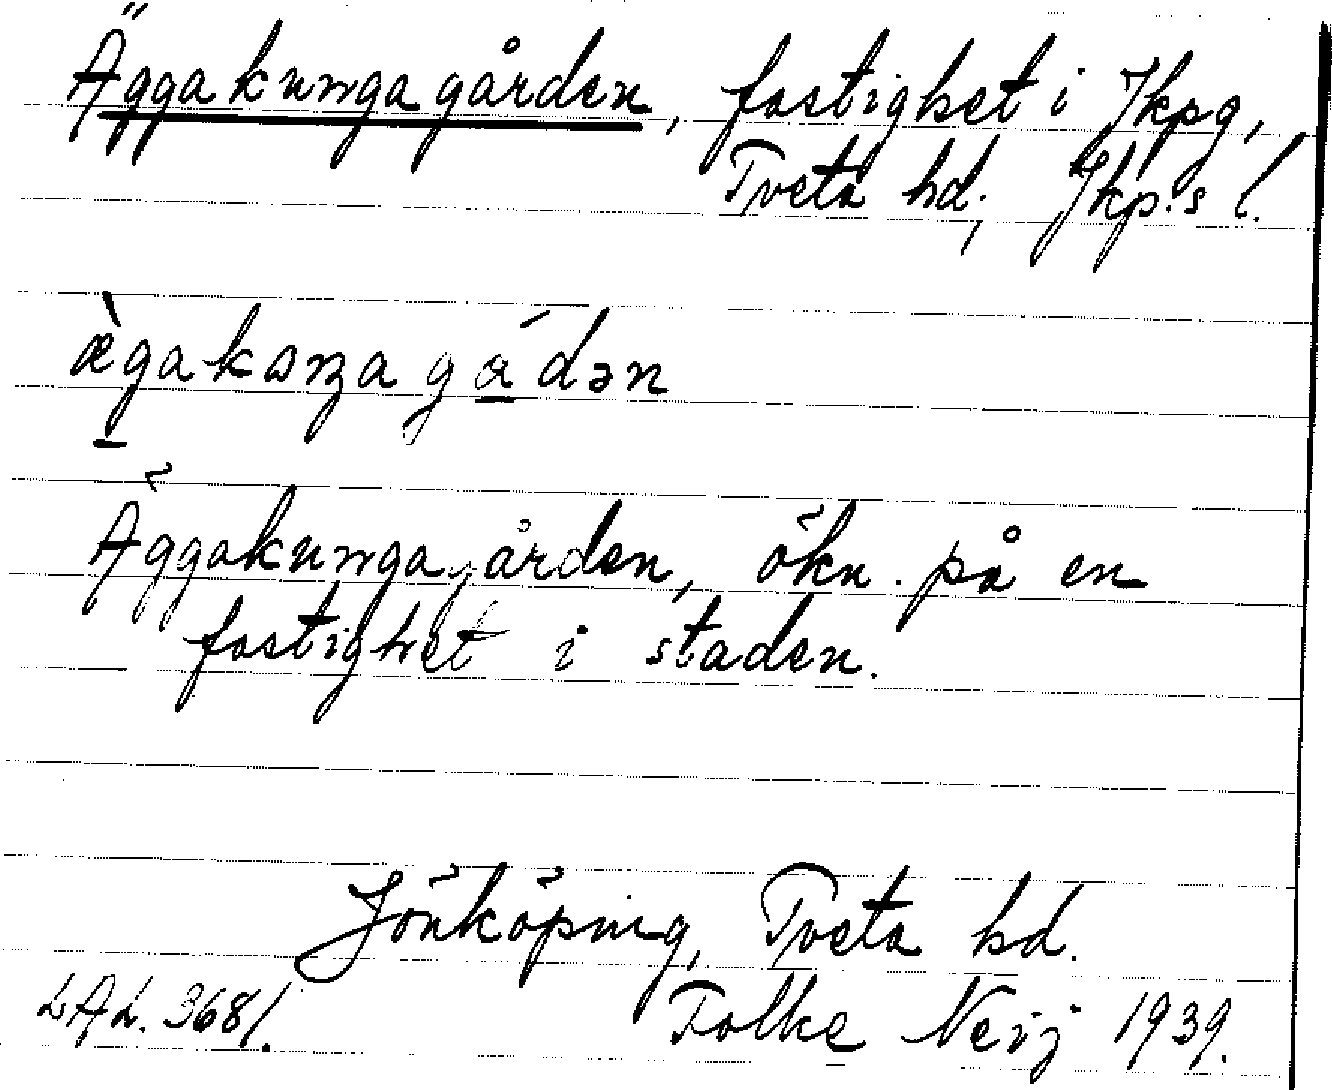 Äggakungagården, fastighet i Jkpg,
Tveta hd, Jkp:s l.
Äggakungagården, ökn. på en
fastighet i staden.
Jönköping, Tveta hd.
LAL. 3681.
Folke Neij 1939.